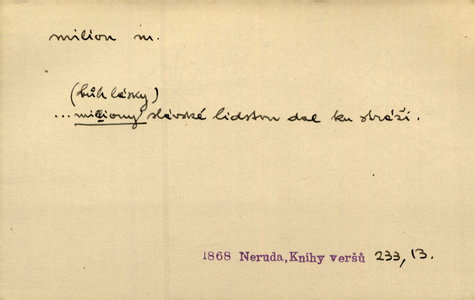 milion m.
(bůh lásky)
... miliony slávské lidstvu dal ku stráži.
1868 Neruda, Knihy veršů 233, 13.